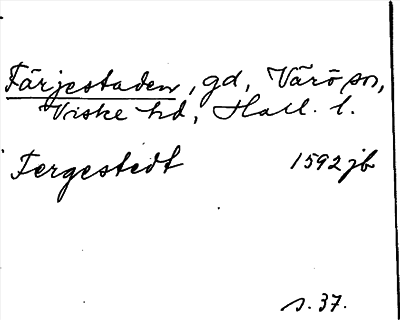 Färjestaden, gd, Värö sn,
Viske hd, Hall. l.
Fergestedt 1592 jb
s. 37.